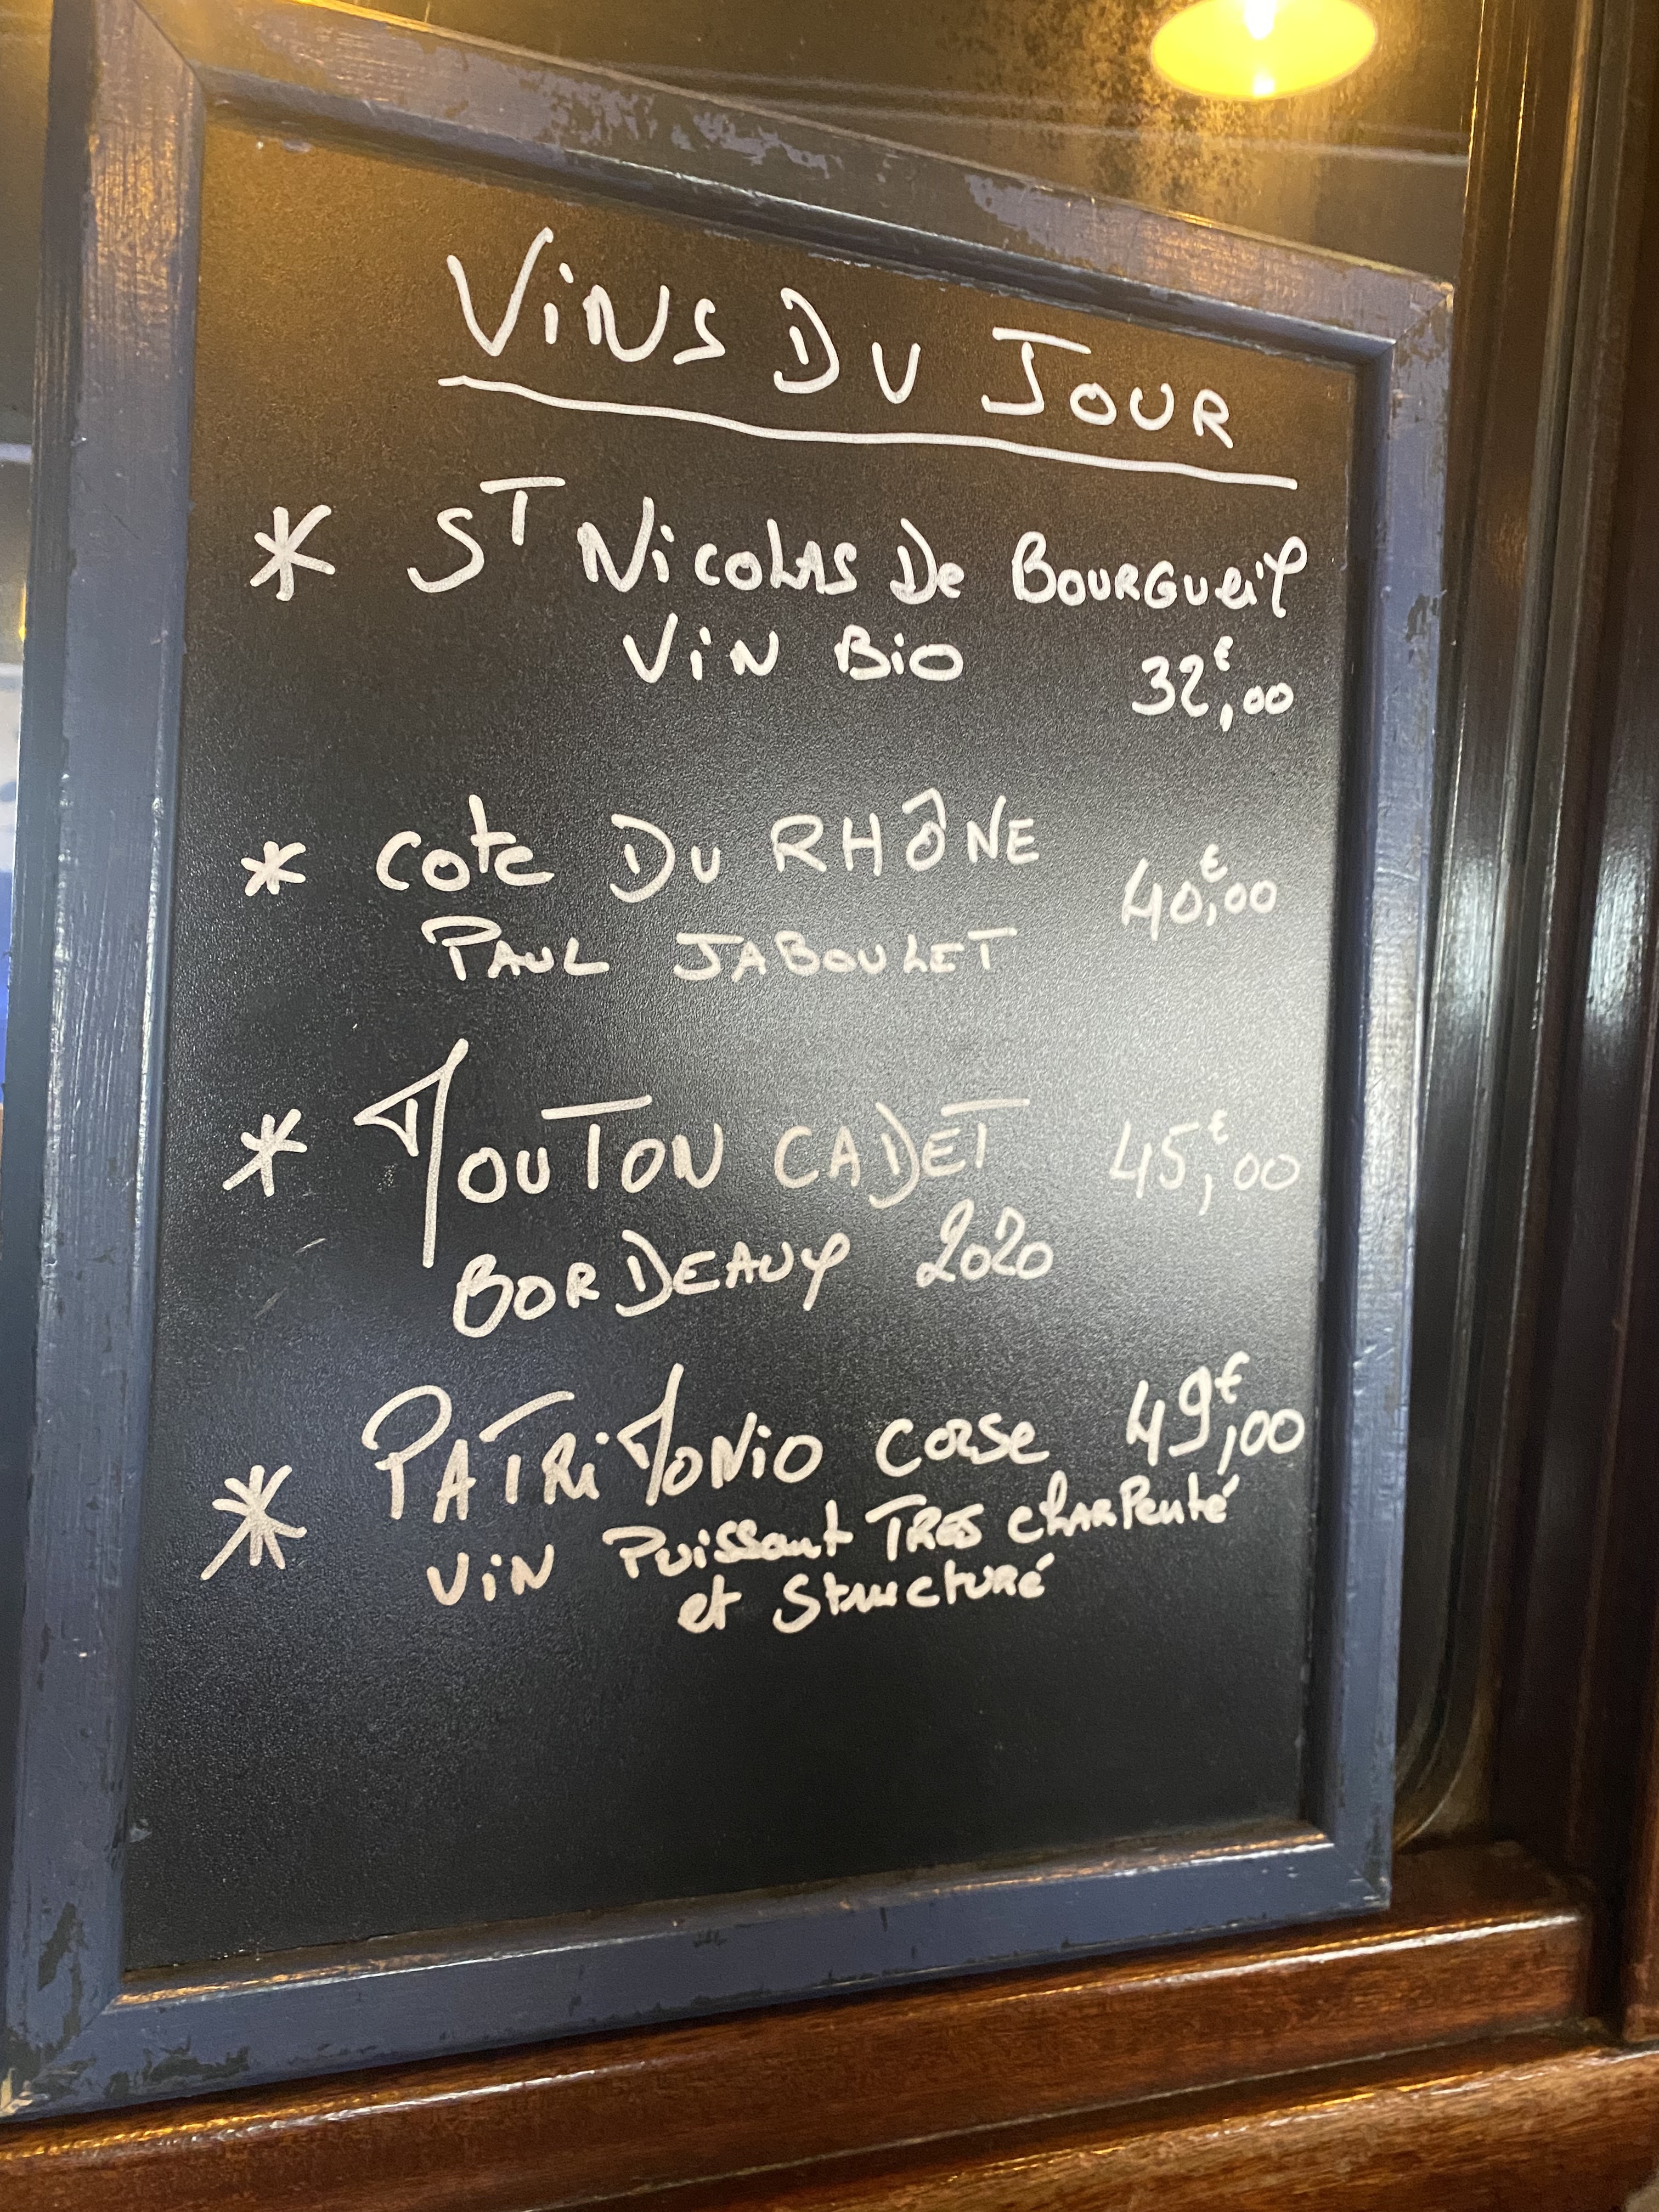 VINS DU JOUR
* ST NICOLAS De BOURGUeiL
VIN BIO 32€,00
* COTe DU RHÔNE 40€,00
PAUL JABOULET
* MOUTON CADET 45€,00
BORDEAUX 2020
* PATRIMONIO CORSe 49€,00
VIN PUissant TRES CHARPenté
et Structuré